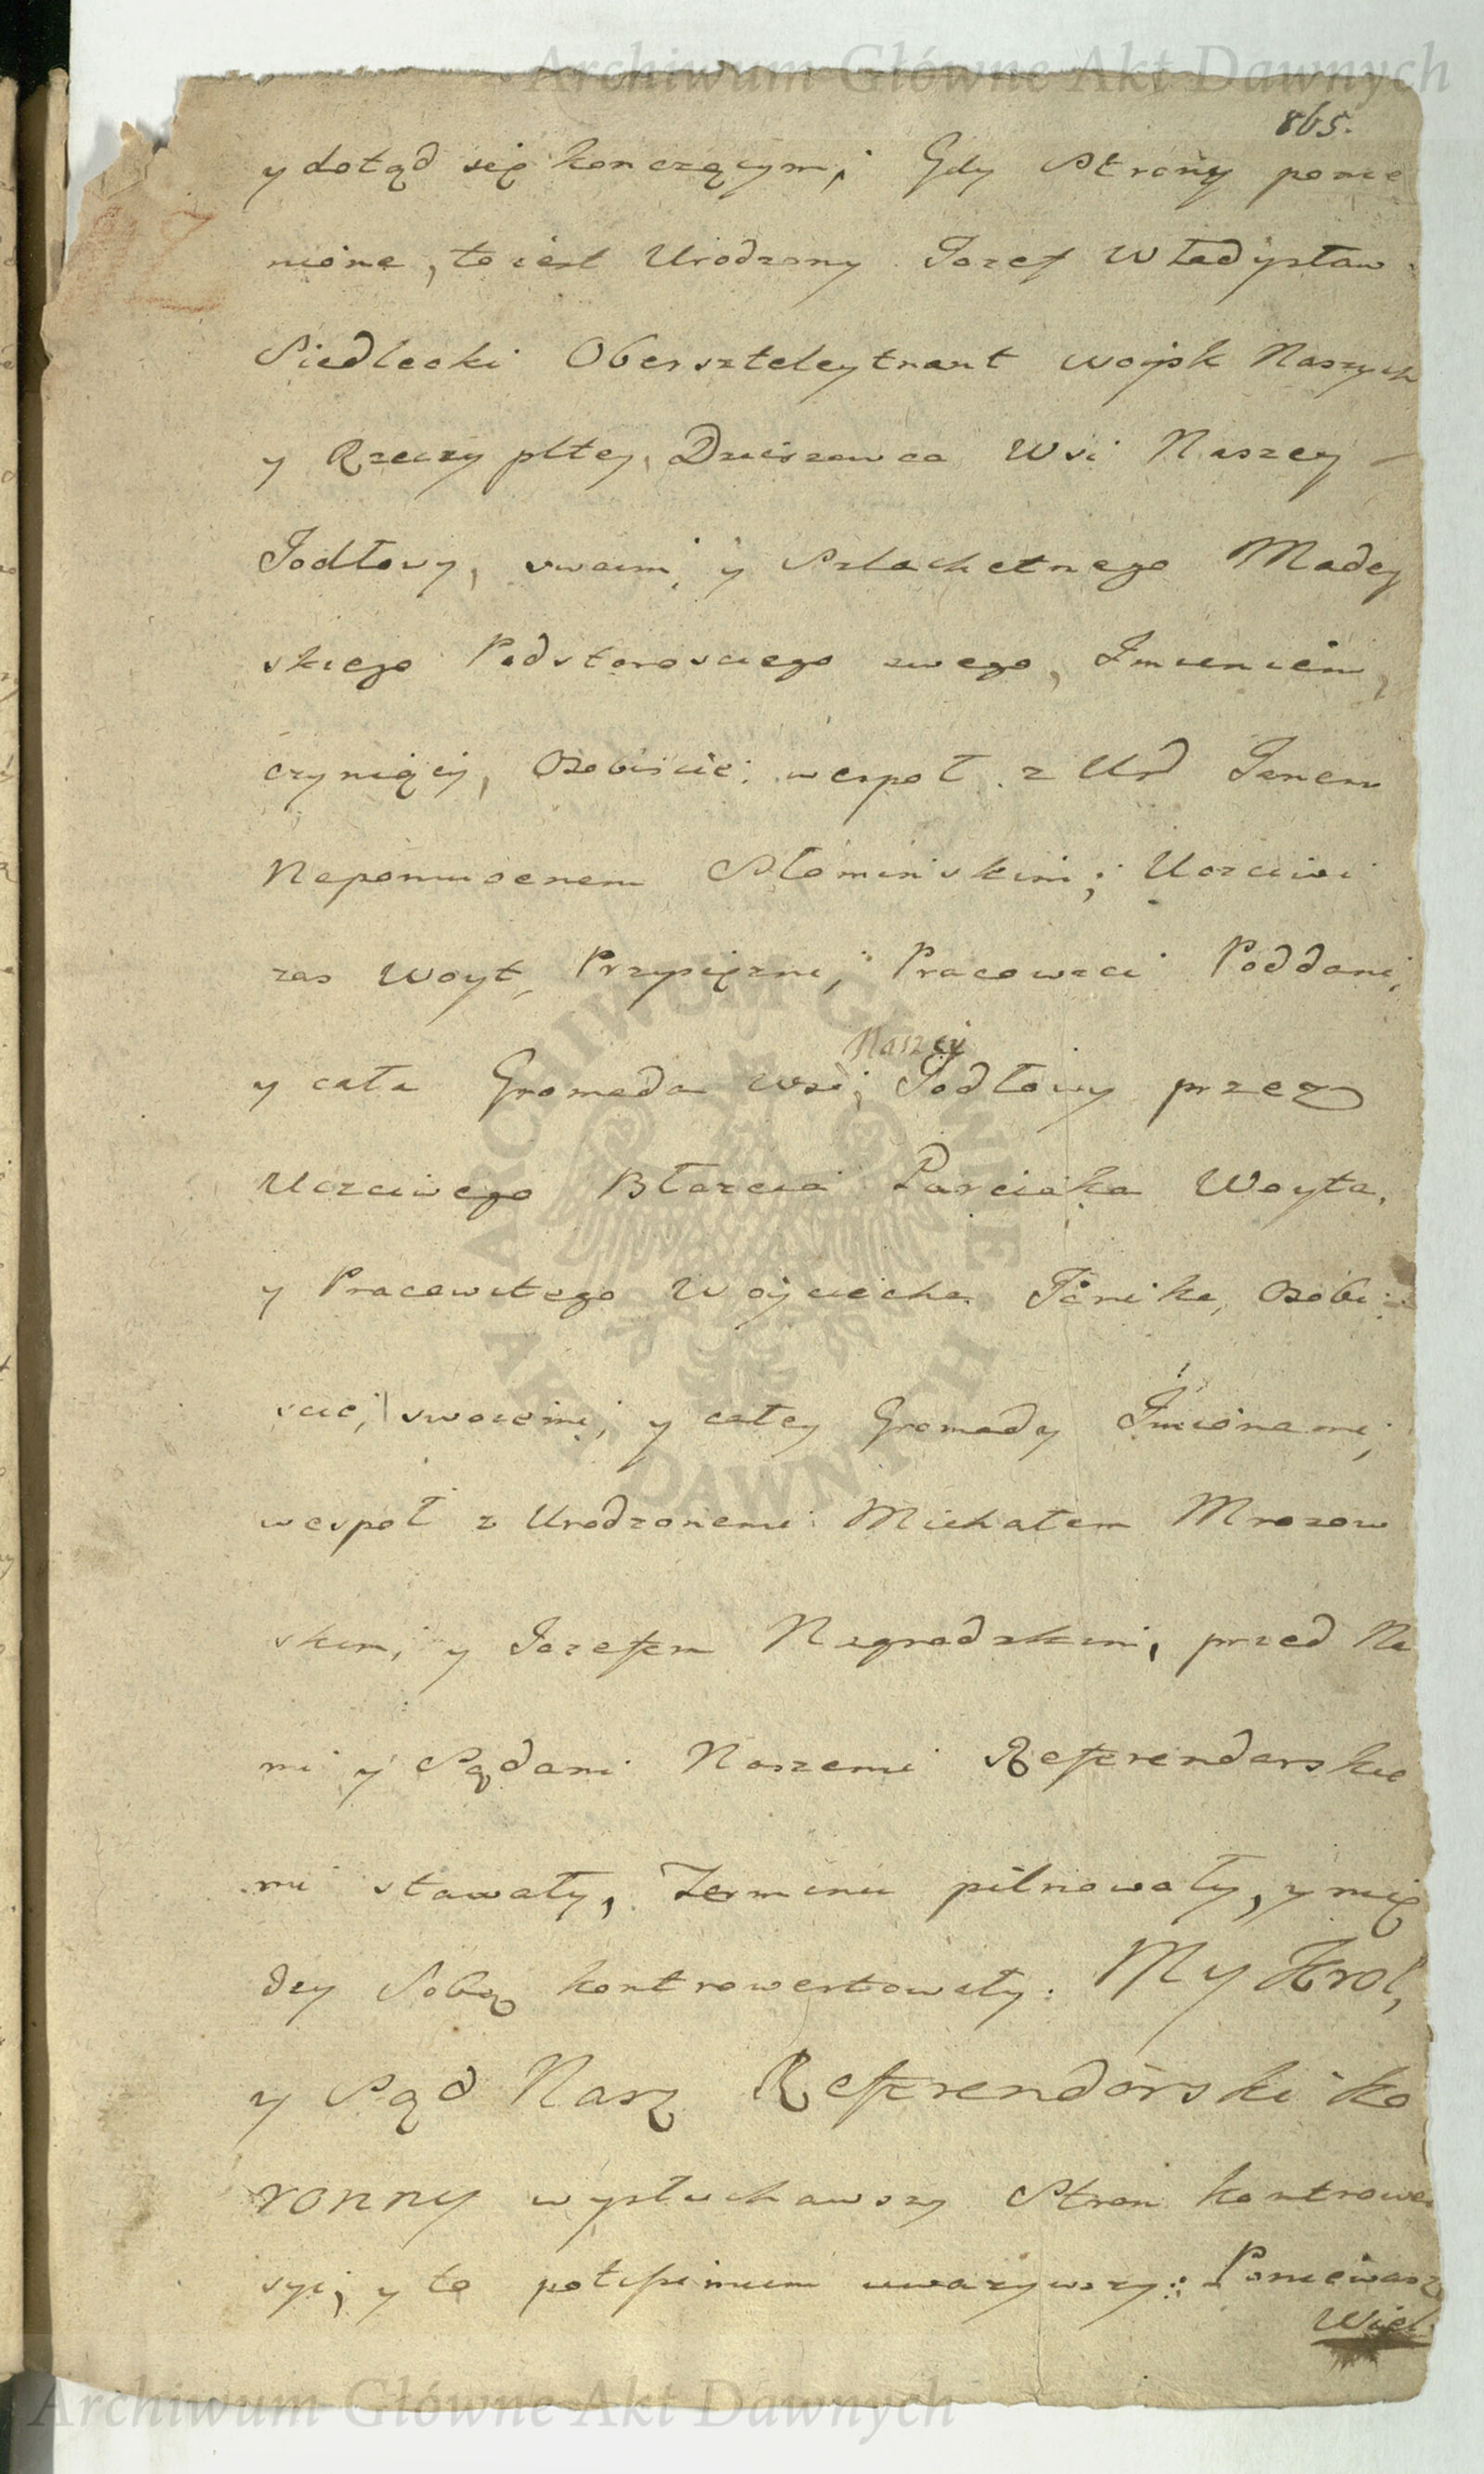 Archiwum Główne Akt Dawnych
865.
y dotąd się konczącym, Gdy Strony pomie
nione, to iest Urodzony Jozef Władysław
Siedlecki Oberszteleytnant woysk Naszych
y Rzeczypltey, Dzierzawca Wsi Naszey
Jodłowy, swoim, y Szlachetnego Madey
skiego Podstarosciego swego, Imieniem,
czyniący, Osobiscie: wespoł z Ur Janem
Nepomucenem Słominskim; Uczciwi
zas Woyt, Przysięzni, Pracowici Poddani,
Naszey
y cała Gromada Wsi, Jodłowy przez
Uczciwego Błazeia Parciaka Woyta,
y Pracowitego Woyciecha Osobi
scie, swoiemi, y całey Gromady Imionami,
wespoł z Urodzonemi Michałem Mrozow
skim, y Jozefem Nagrodzkim, przed Na
mi y Sądami Naszemi Referendarskie
mi stawały, Terminu pilnowały, y mię
dzy Sobą kontrowertowały: My Krol,
y Sąd Nasz Referendarski Ko
ronny wysłuchawszy Stron kontrower
syi, y to potissimum uwazywszy: Poniewasz
Wiel
ARCHIWUM GŁÓWNE AKT DAWNYCH
Archiwum Główne Akt Dawnych